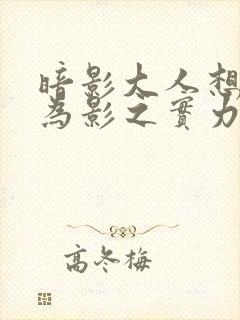 暗影大人想
為影之實力
高冬梅